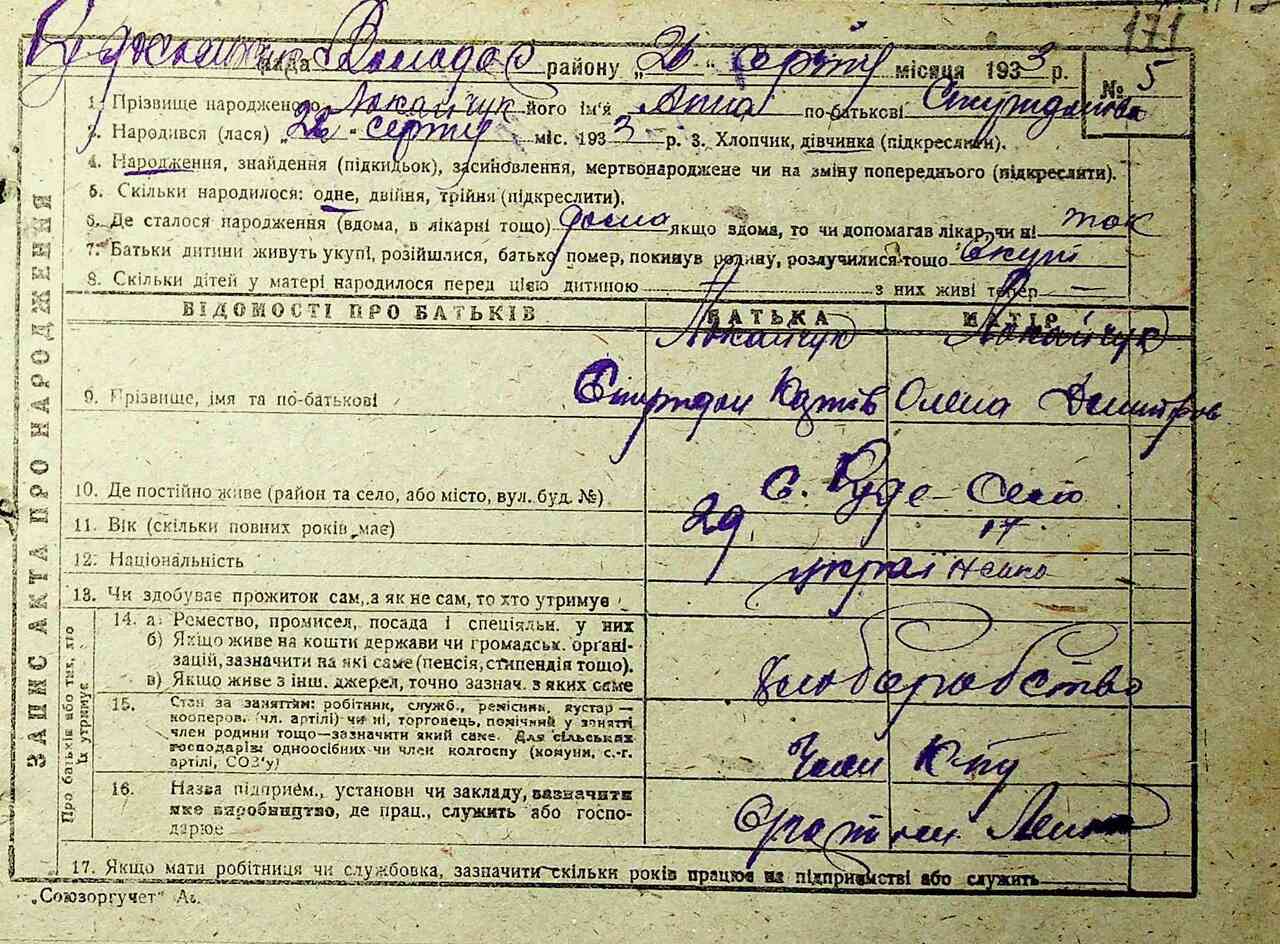 171
рада Володар району „26“ серпу місяця 1933 р. № 5
1. Прізвище народженого Локайчук його ім'я Анна по-батькові Спиридонова
2. Народився (лася) „22“ серпу міс. 1933 р. 3. Хлопчик, дівчинка (підкреслити).
4. Народження, знайдення (підкидьок), засиновлення, мертвонароджене чи на зміну попереднього (підкреслити).
5. Скільки народилося: одне, двійня, трійня (підкреслити).
6. Де сталося народження (вдома, в лікарні тощо) дома якщо вдома, то чи допомагав лікар, чи ні так
7. Батьки дитини живуть укупі, розійшлися, батько помер, покинув родину, розлучилися тощо Вкупі
8. Скільки дітей у матері народилося перед цією дитиною — з них живі тепер —
ЗАПИС АКТА ПРО НАРОДЖЕННЯ
ВІДОМОСТІ ПРО БАТЬКІВ БАТЬКА МАТІР
Локайчук Локайчук
9. Прізвище, імя та по-батькові Спиридон Олена Дмитров
10. Де постійно живе (район та село, або місто, вул. буд. №) с. Руде-Село
11. Вік (скільки повних років має) 29 17
12. Національність
13. Чи здобуває прожиток сам, а як не сам, то хто утримує
Про батьків або тих, хто їх утримує
14. а) Ремество, промисел, посада і спеціяльн. у них
б) Якщо живе на кошти держави чи громадськ. органі-
зацій, зазначити на які саме (пенсія, стипендія тощо).
в) Якщо живе з інш. джерел, точно зазнач. з яких саме хлоборобство
15. Стан за заняттям: робітник, служб., ремісник, кустар —
кооперов. (чл. артілі) чи ні, торговець, помічний у занятті
член родини тощо—зазначити який саме. Для сільських
господарів: одноосібних чи член колгоспу (комуни, с.-г.
артілі, СОЗ'у) Член
16. Назва підприєм., установи чи закладу, вазначити
яке виробництво, де прац., служить або госпо-
дарює
17. Якщо мати робітниця чи службовка, зазначити скільки років працює на підприємстві або служить
„Союзоргучет“